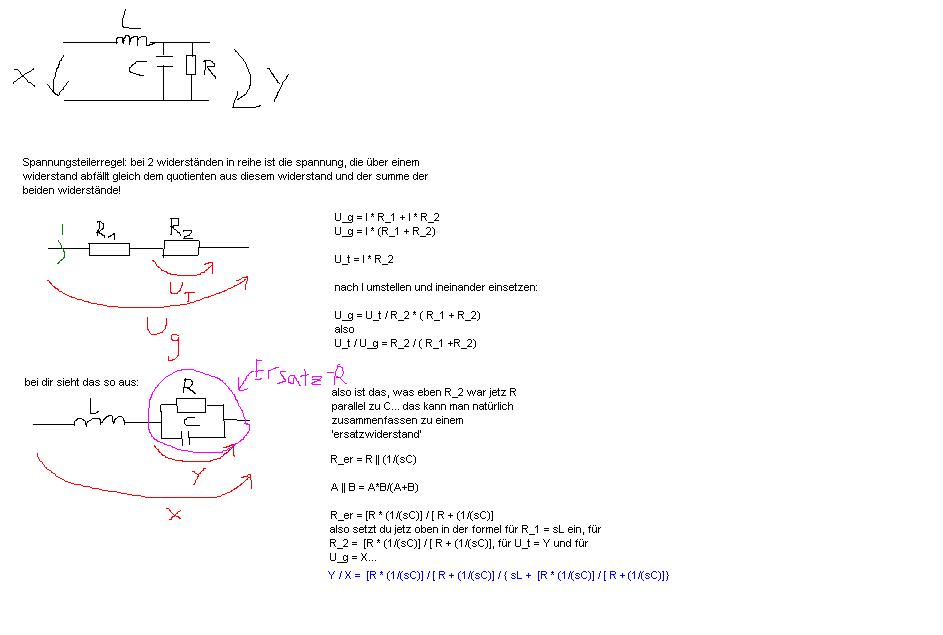 L
X
C
R
Y
Spannungsteilerregel: bei 2 widerständen in reihe ist die spannung, die über einem
widerstand abfällt gleich dem quotienten aus diesem widerstand und der summe der
beiden widerstände!
I
R_1
R_2
U_T
U_g
U_g = I * R_1 + I * R_2
U_g = I * (R_1 + R_2)
U_t = I * R_2
nach I umstellen und ineinander einsetzen:
U_g = U_t / R_2 * ( R_1 + R_2)
also
U_t / U_g = R_2 / ( R_1 +R_2)
bei dir sieht das so aus:
Ersatz-R
L
R
C
Y
X
also ist das, was eben R_2 war jetz R
parallel zu C... das kann man natürlich
zusammenfassen zu einem
'ersatzwiderstand'
R_er = R || (1/(sC)
A || B = A*B/(A+B)
R_er = [R * (1/(sC)] / [ R + (1/(sC)]
also setzt du jetz oben in der formel für R_1 = sL ein, für
R_2 = [R * (1/(sC)] / [ R + (1/(sC)], für U_t = Y und für
U_g = X...
Y / X = [R * (1/(sC)] / [ R + (1/(sC)] / { sL + [R * (1/(sC)] / [ R + (1/(sC)]}